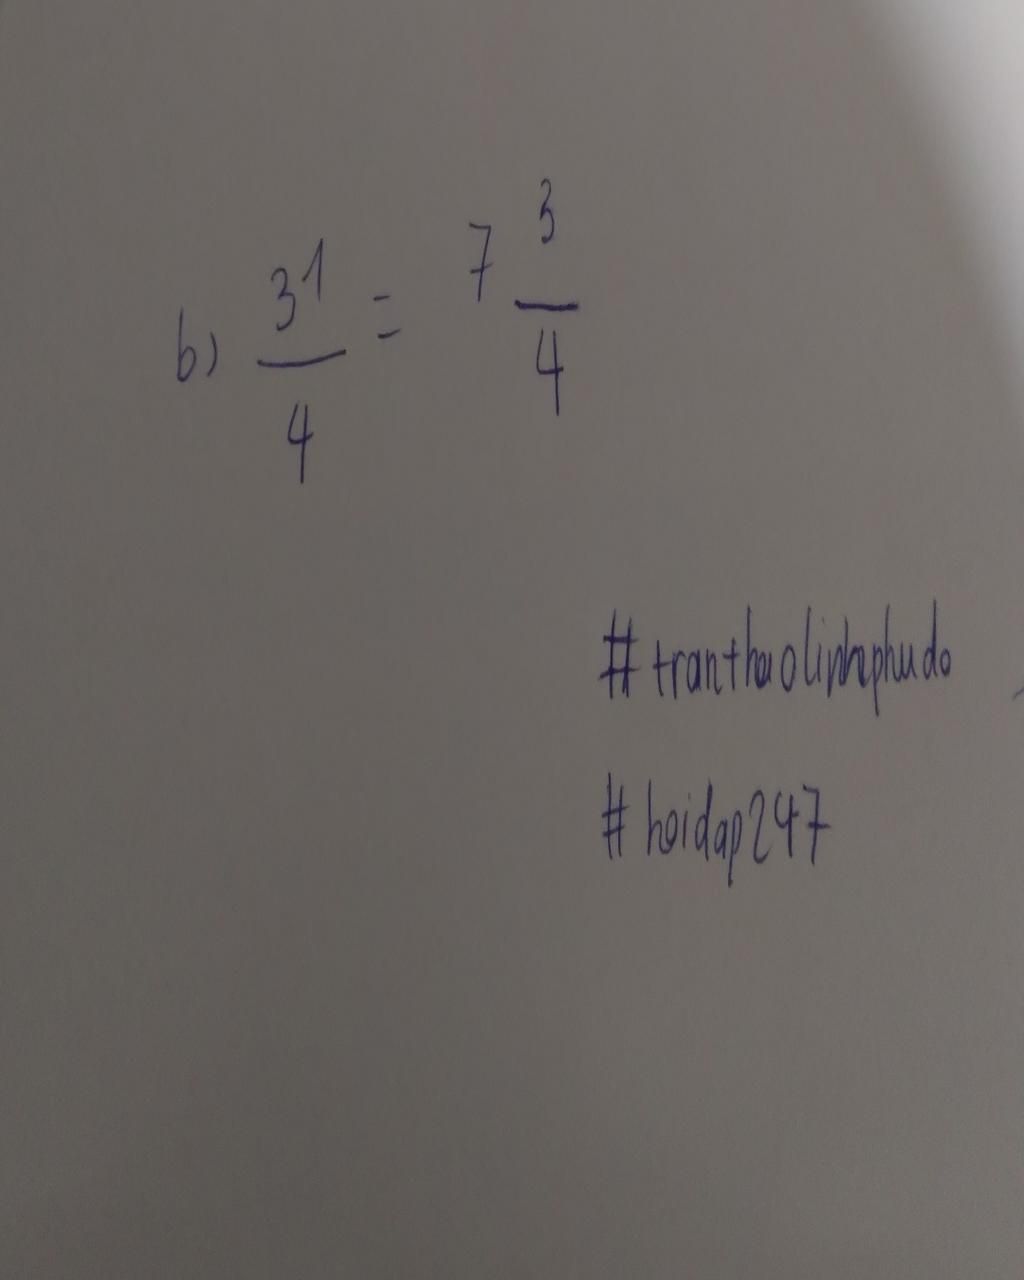 b) 31/4 = 7 3/4
#tranthaolinhphudo
#hoidap247